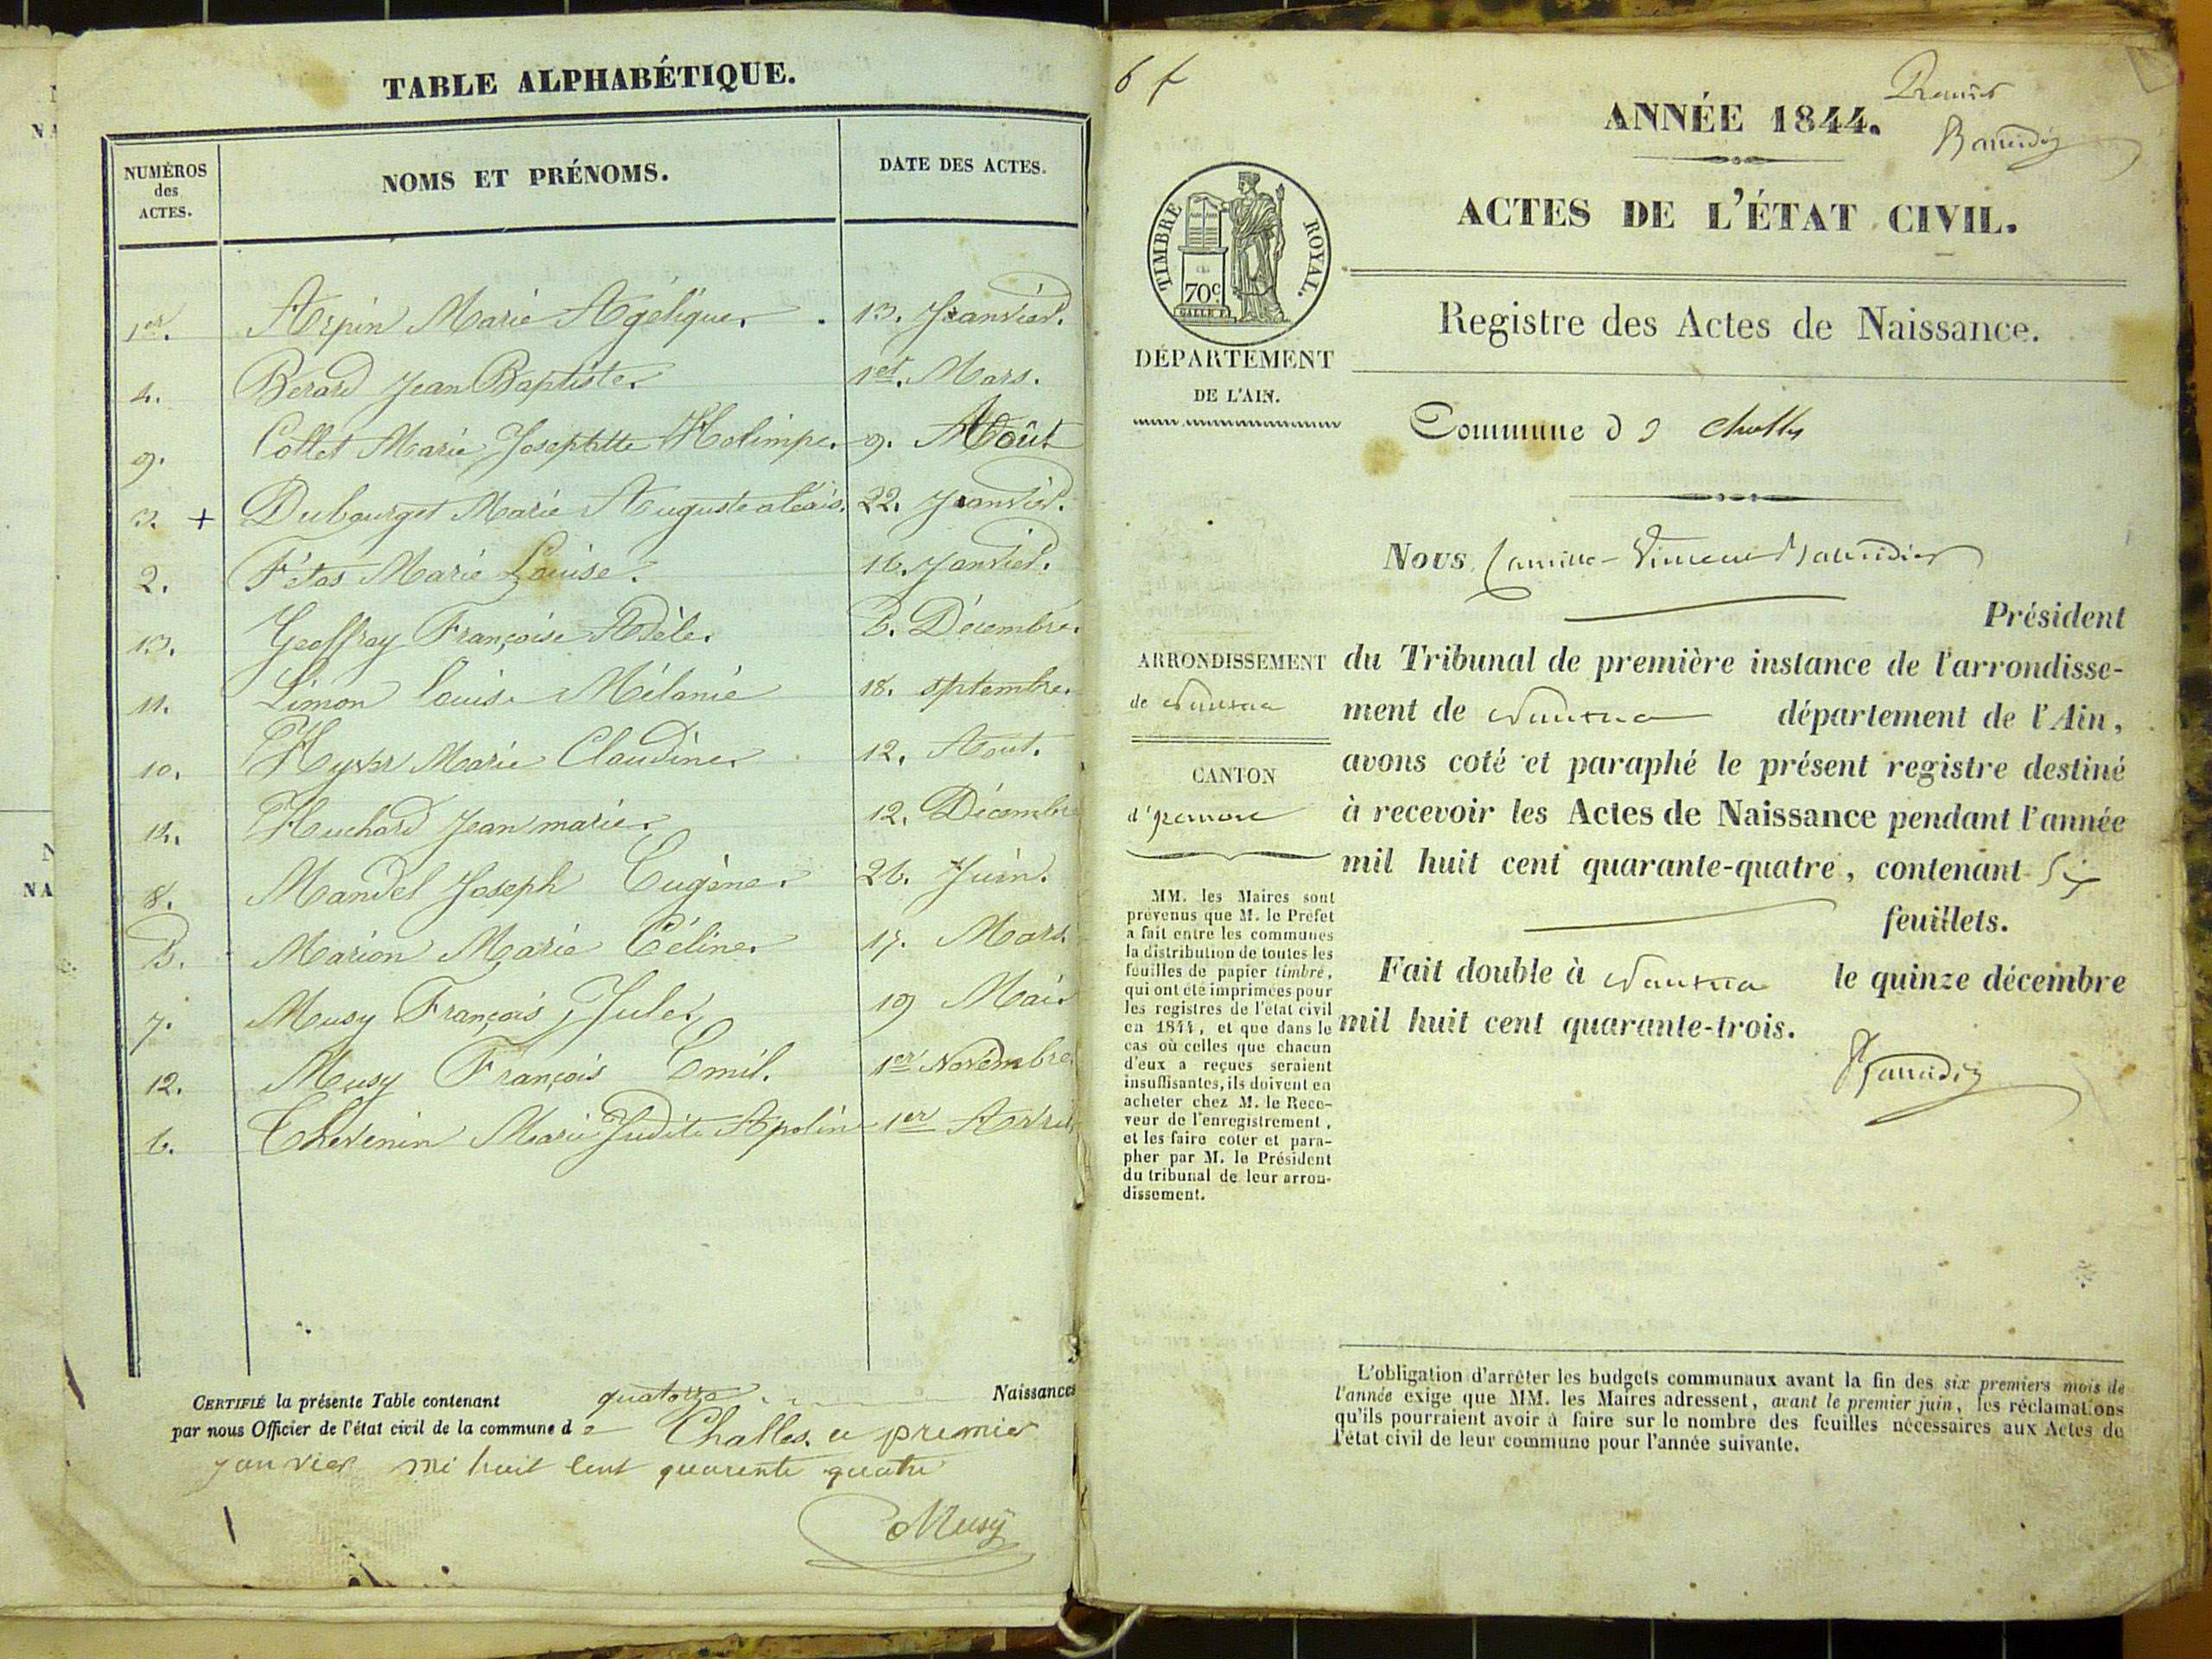 TABLE ALPHABÉTIQUE.
NUMÉROS des ACTES. NOMS ET PRÉNOMS. DATE DES ACTES.
1er. Arpin Marie Agélique. 13. Janvier.
4. Berard Jean Baptiste. 1er. Mars.
9. Collet Marie Josephtte Holimpe. 9. Août
3. + Dubourget Marie Auguste 22. Janvier.
2. Fétas Marie Louise. 16. Janvier.
13. Geoffray Françoise Adèle. 6. Décembre.
11. Limon Louise Mélanie 18. septembre.
10. Marie Claudine. 12. Aout.
14. Huchard Jean marie. 12. Décembre
8. Mandel Joseph Eugène. 26. Juin.
5. Marion Marie Céline. 17. Mars.
7. Musy François Jules 19 Mai
12. Musy François Emil. 1er Novembre.
6. Thevenin Marie Judite Apolin 1er Avril
CERTIFIÉ la présente Table contenant quatorze Naissances
par nous Officier de l'état civil de la commune de Challes, ce premier
janvier mi huit cent quarente quatre
Musy
6 f
Premier
ANNÉE 1844.
ACTES DE L'ÉTAT CIVIL.
TIMBRE ROYAL.
70c
Registre des Actes de Naissance.
DÉPARTEMENT
DE L'AIN.
Commune de Challes
Nous, Camille-Vincent
Président
ARRONDISSEMENT
de Nantua
CANTON
d'izernore
du Tribunal de première instance de l'arrondisse-
ment de Nantua département de l'Ain,
avons coté et paraphé le présent registre destiné
à recevoir les Actes de Naissance pendant l'année
mil huit cent quarante-quatre, contenant Six
feuillets.
Fait double à Nantua le quinze décembre
mil huit cent quarante-trois.
MM. les Maires sont
prévenus que M. le Préfet
a fait entre les communes
la distribution de toutes les
feuilles de papier timbré,
qui ont été imprimées pour
les registres de l'état civil
en 1844, et que dans le
cas où celles que chacun
d'eux a reçues seraient
insuffisantes, ils doivent en
acheter chez M. le Rece-
veur de l'enregistrement,
et les faire coter et para-
pher par M. le Président
du tribunal de leur arron-
dissement.
L'obligation d'arrêter les budgets communaux avant la fin des six premiers mois de
l'année exige que MM. les Maires adressent, avant le premier juin, les réclamations
qu'ils pourraient avoir à faire sur le nombre des feuilles nécessaires aux Actes de
l'état civil de leur commune pour l'année suivante.